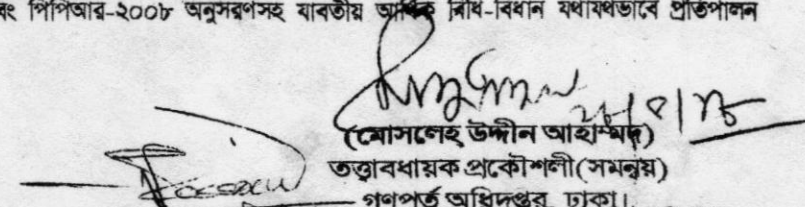 বং পিপিআর-২০০৮ অনুসরণসহ যাবতীয় আর্থিক বিধি-বিধান যথাযথভাবে প্রতিপালন
(মোসলেহ উদ্দীন আহাম্মদ)
তত্ত্বাবধায়ক প্রকৌশলী(সমন্বয়)
গণপূর্ত অধিদপ্তর, ঢাকা।